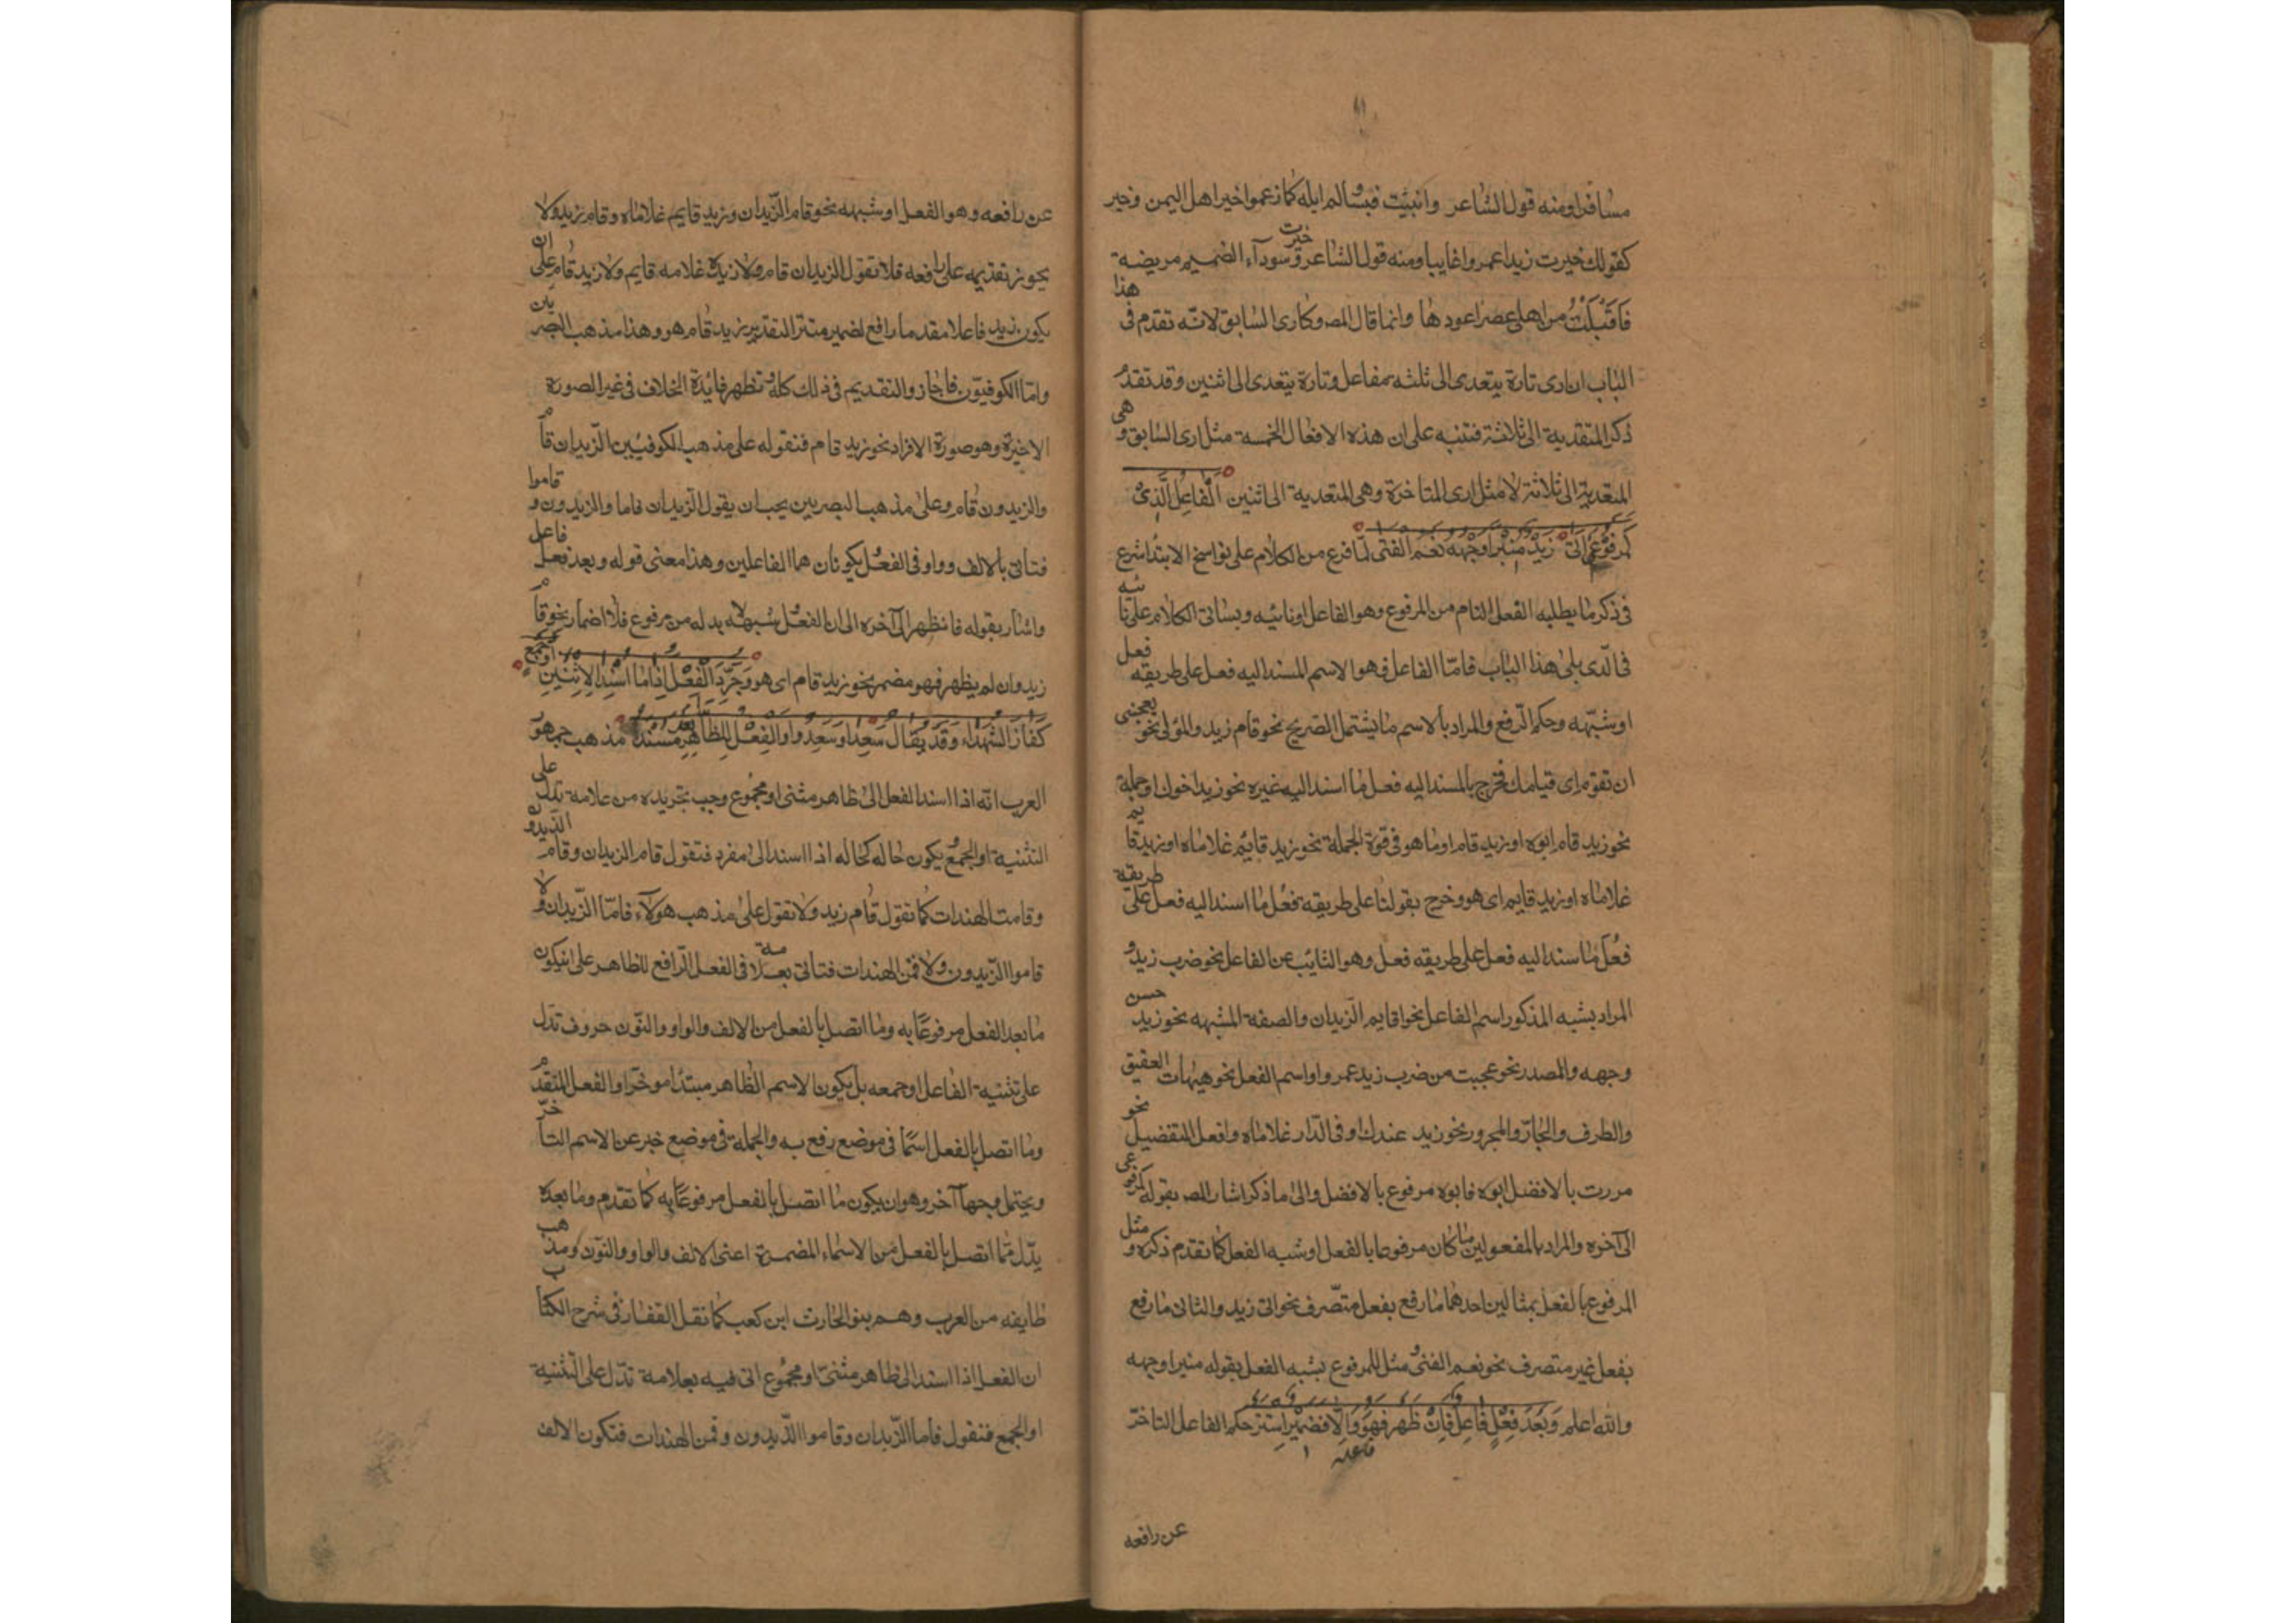 مسافرا ومنه قول الشاعر وانبئت قيسا ولم ابله كما زعموا خير اهل اليمن وخبر
كقولك خبرت زيدا عمروا غايبا ومنه قول الشاعر وخبرت سوداء الضميم مريضة
فاقبلت من اهلي بمصر اعودها وانما قال المص وكارى السابق لانه تقدم في هذا
الباب ان ارى تارة يتعدى الى ثلثه مفاعل وتارة يتعدى الى اثنين وقد تقدم
ذكر المتعدية الى ثلاثة فتنبه على ان هذه الافعال الخمسة مثل ارى السابق وهي
المتعدية الى ثلاثة لا مثل ارى المتاخرة وهي المتعدية الى اثنين الفاعل الذي
كمرفوعي اتى زيد منيرا وجهه نعم الفتى لما فرغ من الكلام على نواسخ الابتدا شرع
في ذكر ما يطلبه الفعل التام من المرفوع وهو الفاعل او نائبه وسياتي الكلام على نائبه
في الذي يلى هذا الباب فاما الفاعل فهو الاسم المسند اليه فعل على طريقه فعل
او شبهه وحكمه الرفع والمراد بالاسم ما يشتمل الصريح نحو قام زيد والمؤل نحو يعجبني
ان تقوم اى قيامك فخرج بالمسند اليه فعل ما اسند اليه غيره نحو زيد اخوك او جملة
نحو زيد قام ابوه او زيد قام او ما هو في قوة الجملة نحو زيد قائم غلاماه او زيد قايم
غلاماه او زيد قايم اى هو وخرج بقولنا على طريقه فعل ما اسند اليه فعل على طريقه
فعل ما اسند اليه فعل على طريقه فعل وهو النائب عن الفاعل نحو ضرب زيد و
المراد بشبه المذكور اسم الفاعل نحو اقايم الزيدان والصفة المشبهه نحو زيد حسن
وجهه والمصدر نحو عجبت من ضرب زيد عمروا واسم الفعل نحو هيهات العقيق
والظرف والجار والمجرور نحو زيد عندك او في الدار غلاماه وافعل التفضيل نحو
مررت بالافضل ابوه فابوه مرفوع بالافضل والى ما ذكر اشار المص بقوله كمرفوعي
الى آخره والمراد بالمفعولين ما كان مرفوعا بالفعل او شبه الفعل كما تقدم ذكره ومثل
المرفوع بالفعل بمثالين احدهما ما رفع بفعل متصرف نحو اتى زيد والثاني ما رفع
بفعل غير متصرف نحو نعم الفتى ومثل للمرفوع بشبه الفعل بقوله منيرا وجهه
والله اعلم وبعد فعل فاعل فان ظهر فهو والا فضمير استتر حكم الفاعل التاخر
عن رافعه
عن رافعه وهو الفعل او شبهه نحو قام الزيدان وزيد قايم غلاماه وقام زيد ولا
يجوز تقديمه على رافعه فلا تقول الزيدان قام ولا زيد غلامه قايم ولا زيد قام على ان
يكون زيد فاعلا مقدما رافع لضمير مستتر التقدير زيد قام هو وهذا مذهب البصريين
واما الكوفيون فاجازوا التقديم في ذلك كله وتظهر فائدة الخلاف في غير الصورة
الاخيرة وهو صورة الافراد نحو زيد قام فنقوله على مذهب الكوفيين الزيدان قام
والزيدون قام وعلى مذهب البصريين يجب ان يقول الزيدان قاما والزيدون قاموا
فتاتي بالالف وواو في الفعل يكونان هما الفاعلين وهذا معنى قوله وبعد فعل فاعل
واشار بقوله فان ظهر الى آخره الى ان الفعل وشبهه لا بد له من مرفوع فلا اضمار نحو قام
زيد وان لم يظهر فهو مضمر نحو زيد قام اى هو وجرد الفعل اذا ما اسند الاثنين او جمع
كفاز الشهداء وقد يقال سعدا وسعدوا والفعل للظاهر بعد مسند مذهب جمهور
العرب انه اذا اسند الفعل الى ظاهر مثنى او مجموع وجب تجريده من علامة تدل على
التثنية او الجمع يكون حاله كحاله اذا اسند الى مفرد فتقول قام الزيدان وقام الزيدون
وقامت الهندات كما تقول قام زيد ولا تقول على مذهب هولاء قاما الزيدان ولا
قاموا الزيدون ولا قمن الهندات فتاتي بعلامة في الفعل الرافع للظاهر على ان يكون
ما بعد الفعل مرفوعا به وما اتصل بالفعل من الالف والواو والنون حروف تدل
على تثنية الفاعل او جمعه بل يكون الاسم الظاهر مبتدا موخرا والفعل المتقدم
وما اتصل بالفعل اسما في موضع رفع به والجملة في موضع خبر عن الاسم المتاخر
ويحتمل وجها آخر وهو ان يكون ما اتصل بالفعل مرفوعا به كما تقدم وما بعده
يدل مما اتصل بالفعل من الاسماء المضمرة اعنى الالف والواو والنون ومذهب
طايفه من العرب وهم بنو الحارث ابن كعب كما نقل القفار في شرح الكتاب
ان الفعل اذا اسند الى ظاهر مثنى او مجموع اتى فيه بعلامة تدل على التثنية
او الجمع فتقول قاما الزيدان وقاموا الزيدون وقمن الهندات فتكون الالف